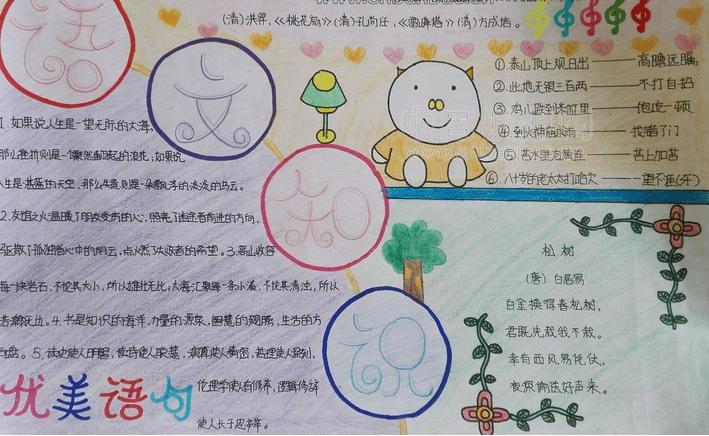 (清)洪昇、《桃花扇》(清)孔尚任、《雷峰塔》(清)方成培。
语
文
知
识
①泰山顶上观日出——高瞻远瞩
②此地无银三百两——不打自招
③鸡儿跌到米缸里——饱吃一顿
④到火神庙求雨——找错了门
⑤苦水里泡黄连——苦上加苦
⑥八十岁的老太太打哈欠——一望不涯(牙)
1.如果说人生是一望无际的大海,
那么挫折则是一个骤然翻起的浪花;如果说
人生是湛蓝的天空,那么失意则是一朵飘浮的淡淡的乌云。
2.友谊之火温暖了朋友受伤的心,照亮了迷途者前进的方向,
驱散了孤独者心中的阴云,点燃了失败者的希望。3.高山收容
每一块岩石,不论其大小,所以雄壮无比;大海汇聚每一条小溪,不论其清浊,所以
浩瀚无边。4.书是知识的海洋,力量的源泉,智慧的翅膀,生活的方
向盘。5.读史使人明智,读诗使人灵慧,演算使人精密,哲理使人深刻,
伦理学使人有修养,逻辑修辞
使人长于思辨。
优美语句
松树
(唐)白居易
白金换得青松树,
君既先栽我不栽。
幸有西风易凭仗,
夜深偷送好声来。